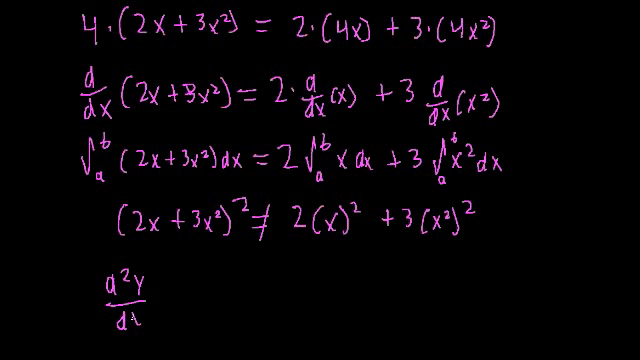 4·(2x + 3x²) = 2·(4x) + 3·(4x²)
d/dx (2x + 3x²) = 2·d/dx (x) + 3 d/dx (x²)
∫ₐᵇ (2x + 3x²) dx = 2 ∫ₐᵇ x dx + 3 ∫ₐᵇ x² dx
(2x + 3x²)² ≠ 2(x)² + 3(x²)²
d²y/dx